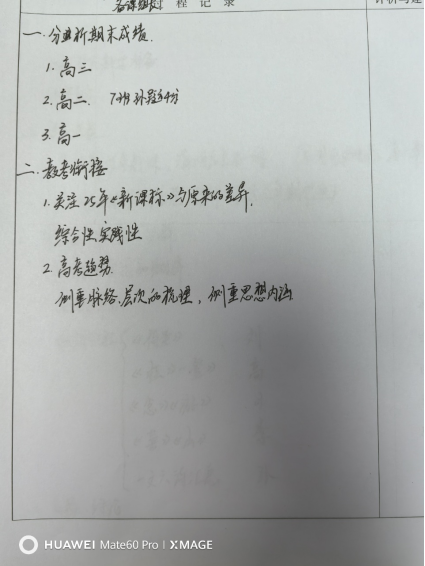 备课组长 程 记 录
一、分班析期末成绩.
1. 高三
2. 高二. 7班
3. 高一
二. 教考衔接
1. 关注25年《新课标》与原来的差异.
综合性 实践性
2. 高考趋势.
侧重脉络.层次的梳理，侧重思想内涵
HUAWEI Mate60 Pro | XMAGE